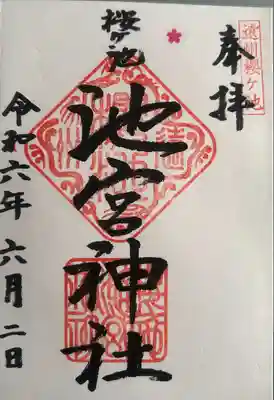 遠州櫻ヶ池
奉拝
桜ヶ池
池宮神社
令和六年六月二日